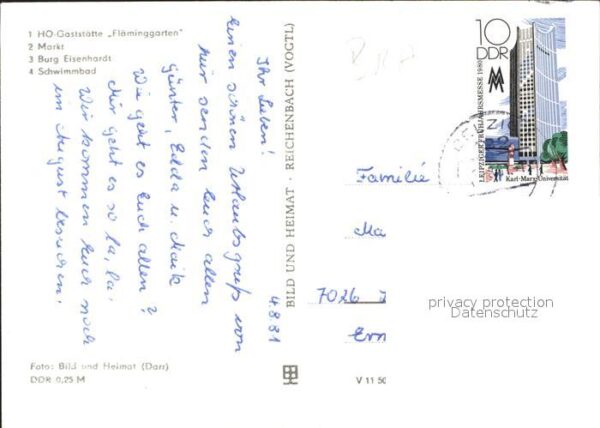 1 HO-Gaststätte „Fläminggarten"
2 Markt
3 Burg Eisenhardt
4 Schwimmbad
4.8.81
Ihr Lieben!
Einen schönen Urlaubsgruß von
hier senden Euch allen
Günter, Edda u. Maik
Wie geht es Euch allen?
Mir geht es so la, la.
Wir kommen Euch noch
im August besuchen.
Foto: Bild und Heimat (Darr)
DDR 0,25 M
BILD UND HEIMAT · REICHENBACH (VOGTL)
V 11 50
10
DDR
LEIPZIGER FRÜHJAHRSMESSE 1980
Karl-Marx-Universität
Familie
Ma
7026
Ern
privacy protection
Datenschutz